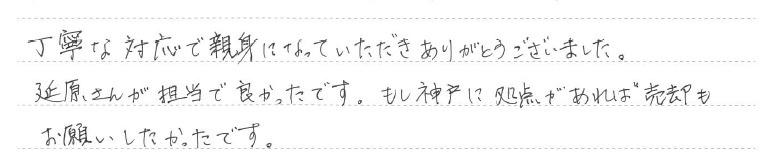 丁寧な対応で親身になっていただきありがとうございました。
延原さんが担当で良かったです。もし神戸に処点があれば売却も
お願いしたかったです。